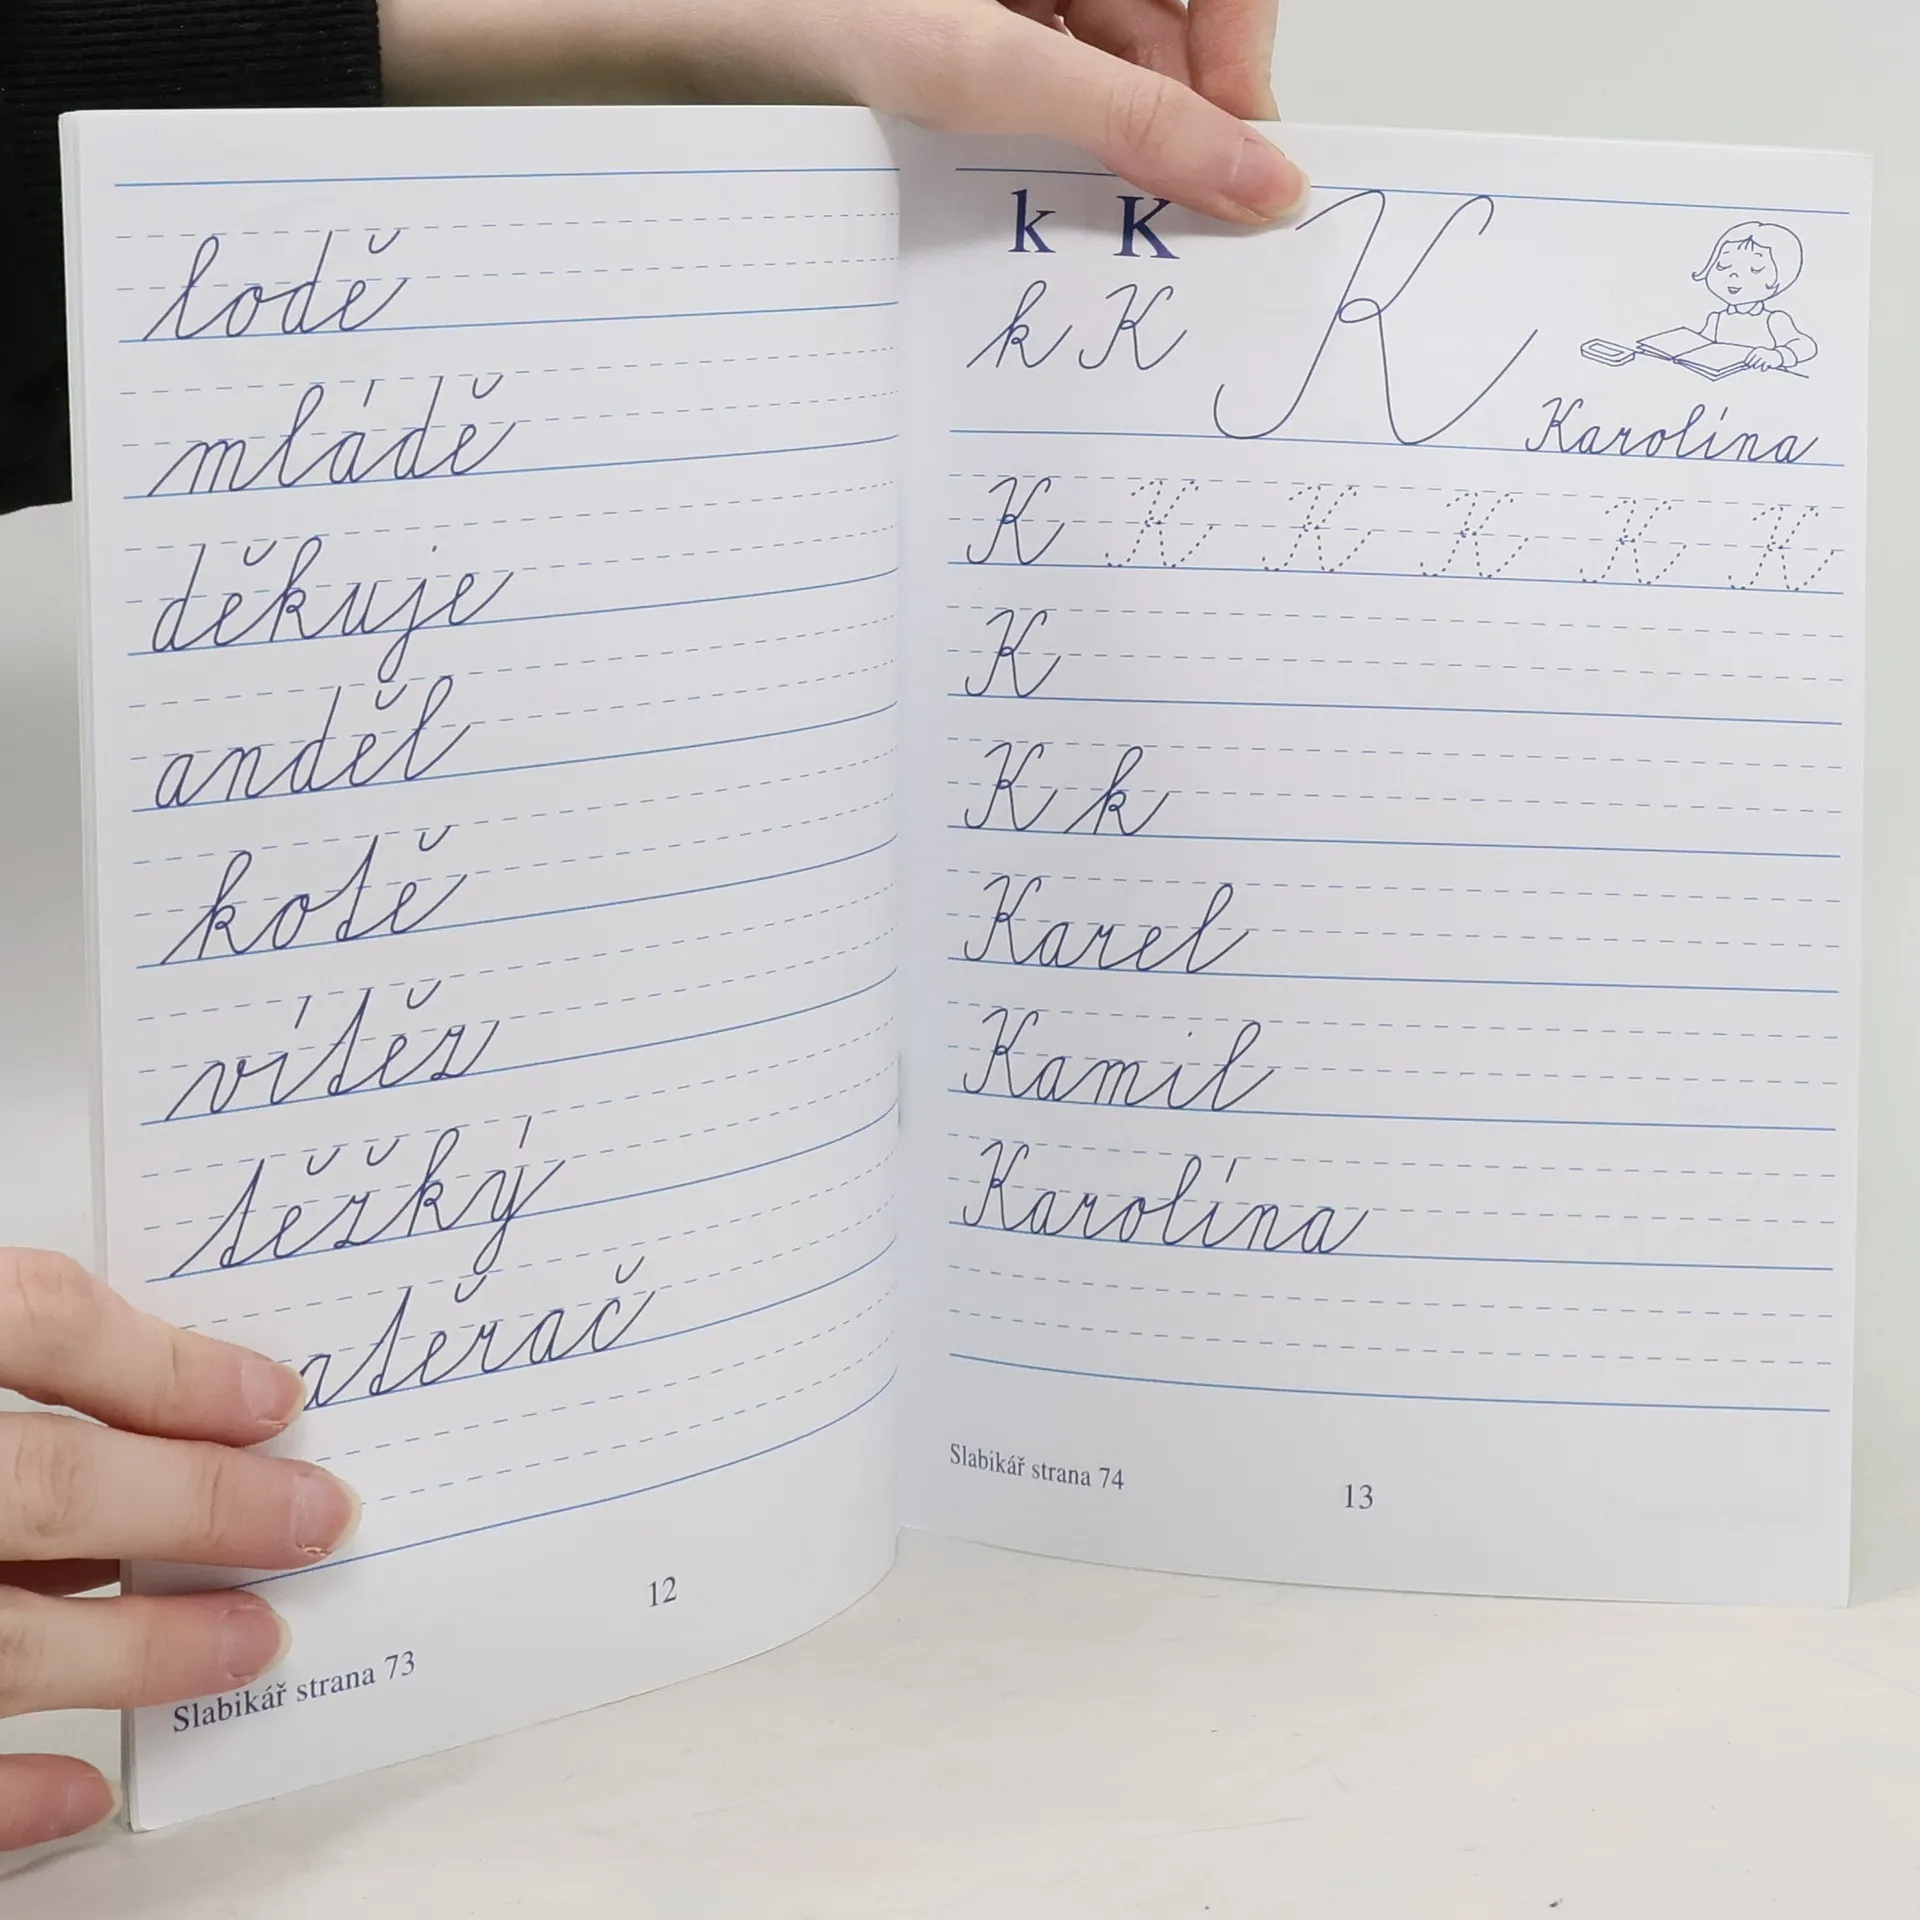 lodě
mládě
děkuje
anděl
kotě
vítěz
těžký
12
Slabikář strana 73
k K
k K K
Karolína
K K K K K K
K
K k
Karel
Kamil
Karolína
Slabikář strana 74
13